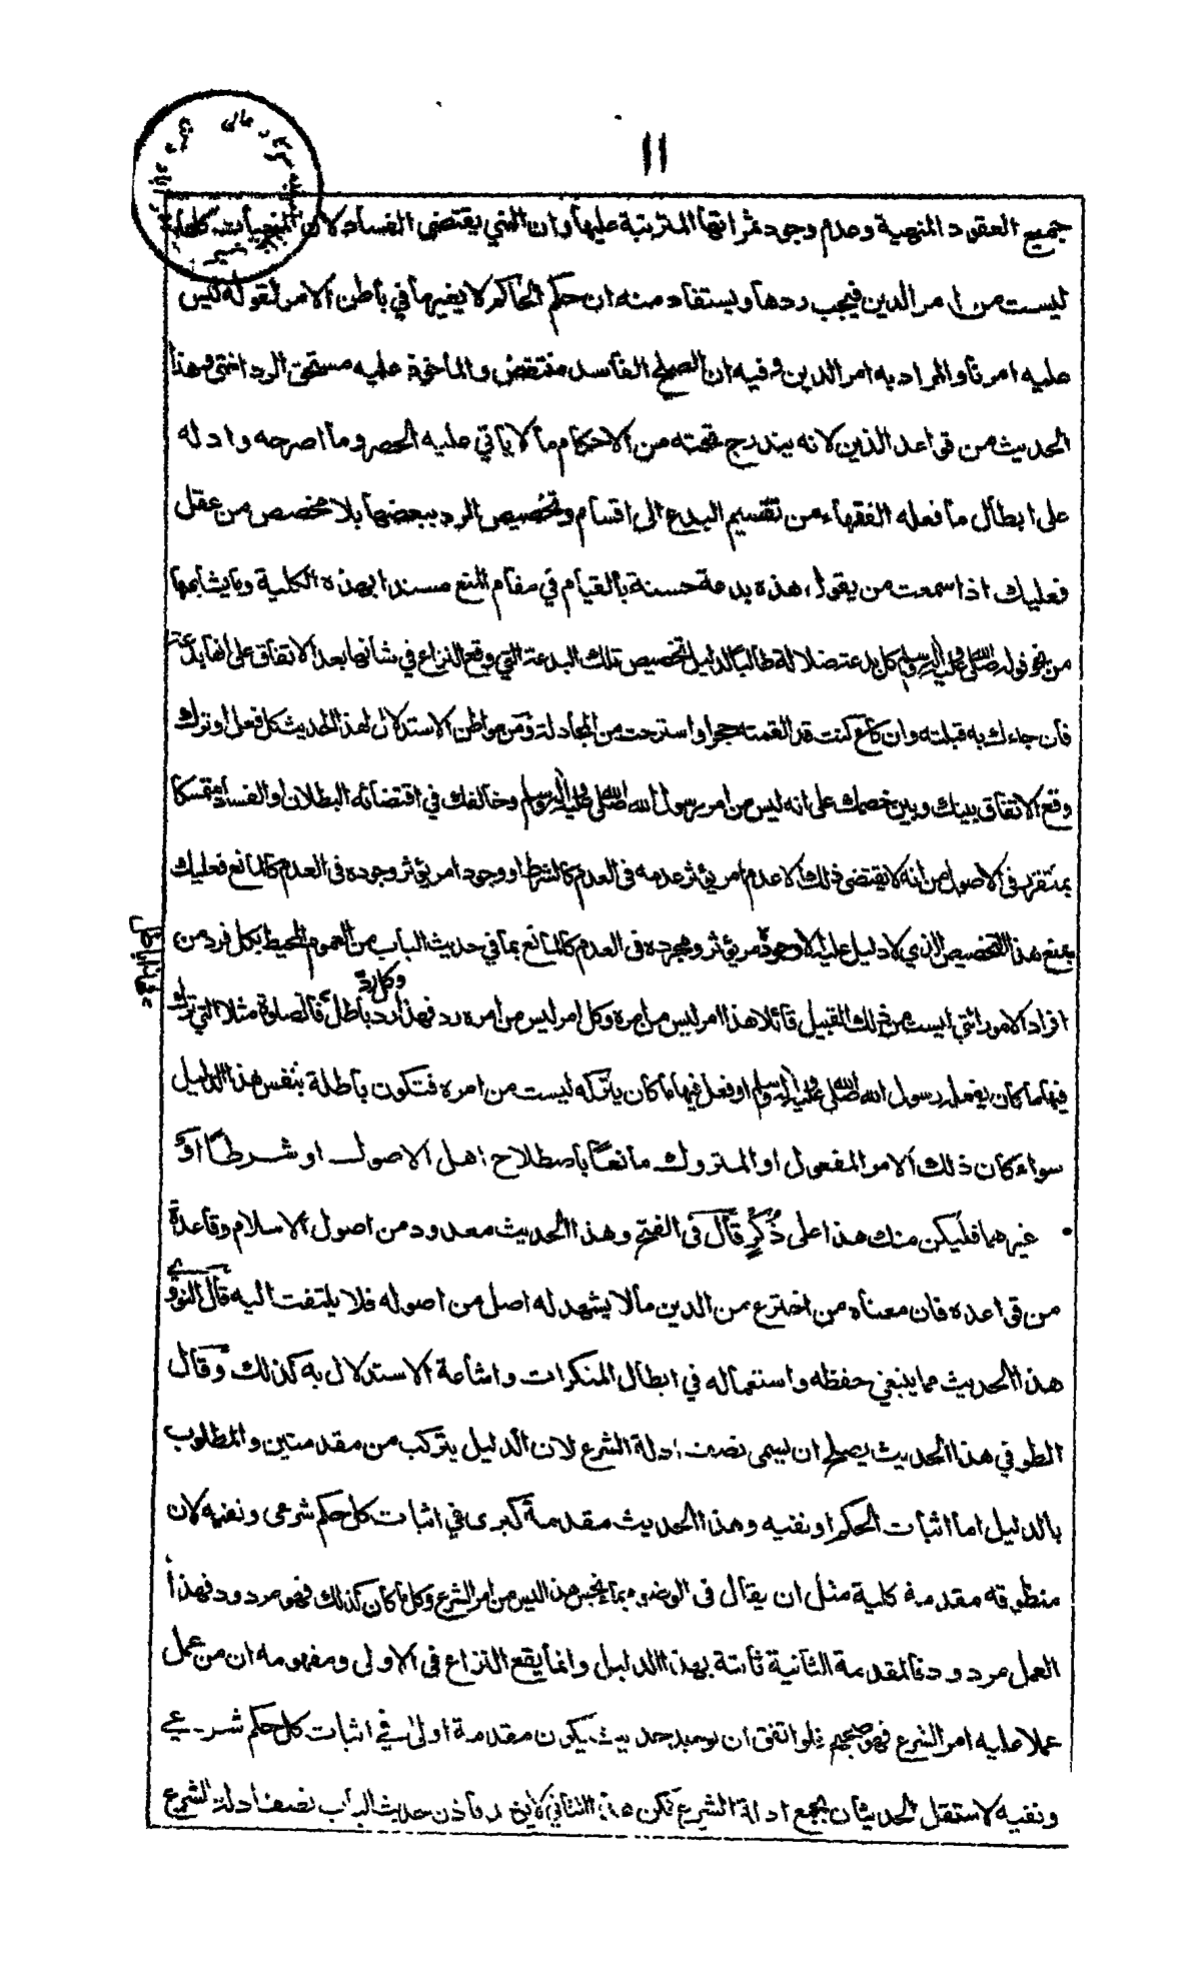 ١١
جميع العقود المنهية وعدم وجود ثمراتها المترتبة عليها وان النهي يقتضى الفساد لان المنهيات كلها
ليست من امر الدين فيجب ردها ويستفاد منه ان حكم الحاكم لا يغير ما في باطن الامر لقوله ليس
عليه امرنا والمراد به امر الدين وفيه ان الصلح الفاسد منتقض والماخوذ عليه مستحق الرد انتهى وهذا
الحديث من قواعد الدين لانه يندرج تحته من الاحكام ما لا ياتي عليه الحصر وما اصرحه وادله
على ابطال ما فعله الفقهاء من تقسيم البدع الى اقسام وتخصيص الرد ببعضها بلا مخصص من عقل
فعليك اذا سمعت من يقول هذه بدعة حسنة بالقيام في مقام المنع مسندا بهذه الكلية وما يشابهها
من نحو قوله صلى الله عليه واله وسلم كل بدعة ضلالة طالبا لدليل تخصيص تلك البدعة التي وقع النزاع في شانها بعد الاتفاق على انها بدعة
فان جاءك به قبلته وان كاع كنت قد القمته حجرا واسترحت من المجادلة ومن مواطن الاستدلال لهذا الحديث كل فعل او ترك
وقع الاتفاق بينك وبين خصمك على انه ليس من امر رسول الله صلى الله عليه واله وسلم وخالفك في اقتضائه البطلان او الفساد متمسكا
بما تقرر فى الاصول من انه لا يقتضى ذلك الا عدم امر يؤثر عدمه فى العدم كالشرط او وجود امر يؤثر وجوده فى العدم كالمانع فعليك
بمنع هذا التخصيص الذي لا دليل عليه الا وجود امر يؤثر وجوده فى العدم كالمانع بما في حديث الباب من العموم المحيط بكل فرد من
افراد الامور التي ليست من ذلك القبيل قائلا هذا امر ليس من امره وكل امر ليس من امره رد فهذا رد وكل رد باطل فالصلوة مثلا التي ترك
فيها ما كان يفعله رسول الله صلى الله عليه واله وسلم او فعل فيها ما كان يتركه ليست من امره فتكون باطلة بنفس هذا الدليل
سواء كان ذلك الامر المفعول او المتروك مانعا باصطلاح اهل الاصول او شرطا او
غيرهما فليكن منك هذا على ذكر قال فى الفتح وهذا الحديث معدود من اصول الاسلام وقاعدة
من قواعده فان معناه من اخترع من الدين ما لا يشهد له اصل من اصوله فلا يلتفت اليه قال النووي
هذا الحديث مما ينبغي حفظه واستعماله في ابطال المنكرات واشاعة الاستدلال به كذلك وقال
الطوفي هذا الحديث يصلح ان يسمى نصف ادلة الشرع لان الدليل يتركب من مقدمتين والمطلوب
بالدليل اما اثبات الحكم او نفيه وهذا الحديث مقدمة كبرى في اثبات كل حكم شرعى ونفيه لان
منطوقه مقدمة كلية مثل ان يقال فى الوضوء بماء نجس هذا ليس من امر الشرع وكل ما كان كذلك فهو مردود فهذا
العمل مردود فالمقدمة الثانية ثابتة بهذا الدليل وانما يقع النزاع فى الاولى ومفهومه ان من عمل
عملا عليه امر الشرع فهو صحيح فلو اتفق ان يوجد حديث يكون مقدمة اولى في اثبات كل حكم شرعي
ونفيه لاستقل الحديثان بجميع ادلة الشرع لكن هذا الثاني لا يوجد فاذن حديث الباب نصف ادلة الشرع